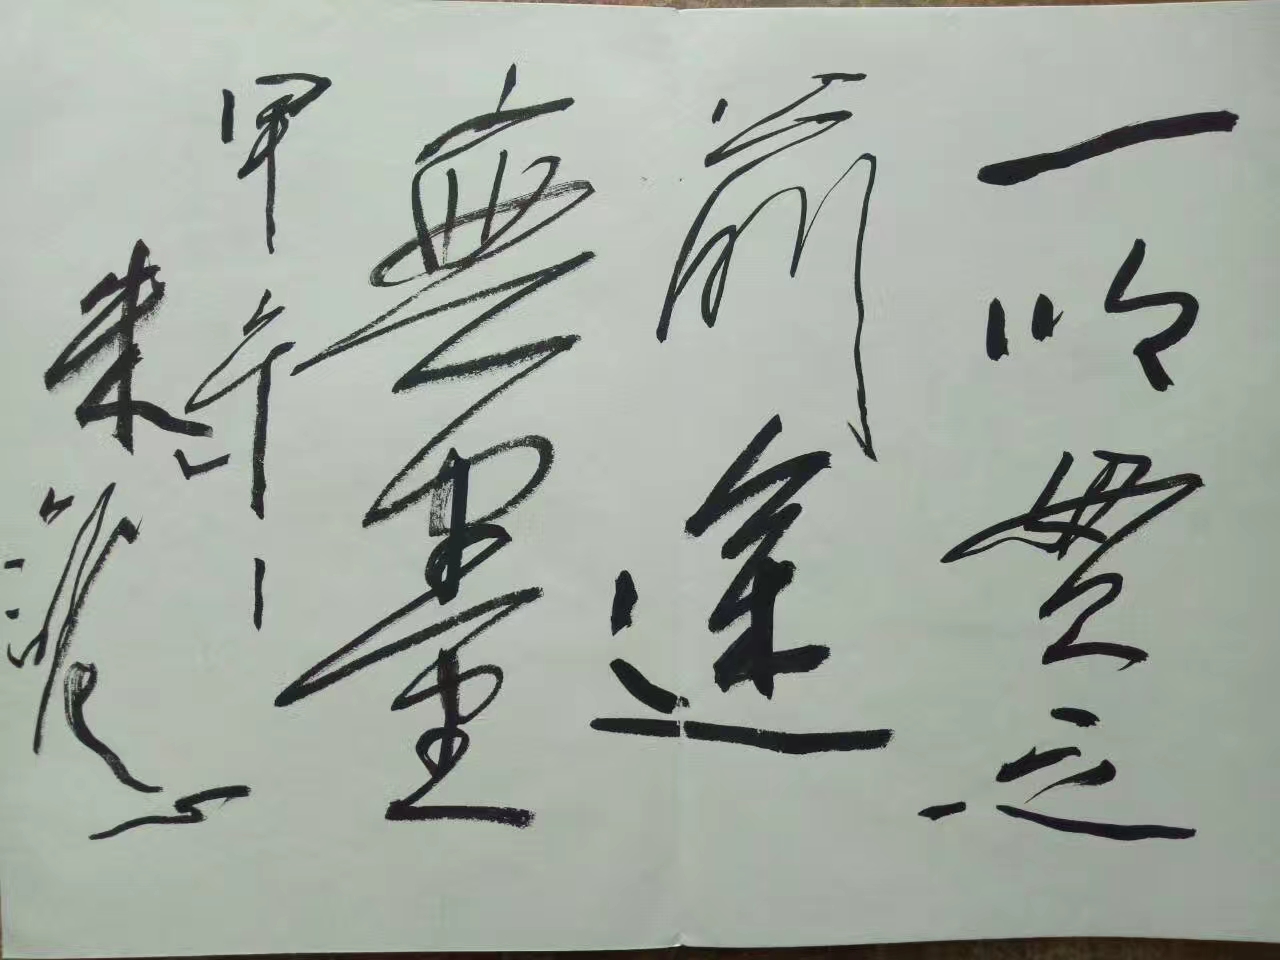 一以貫之
前途
無量
甲午
朱